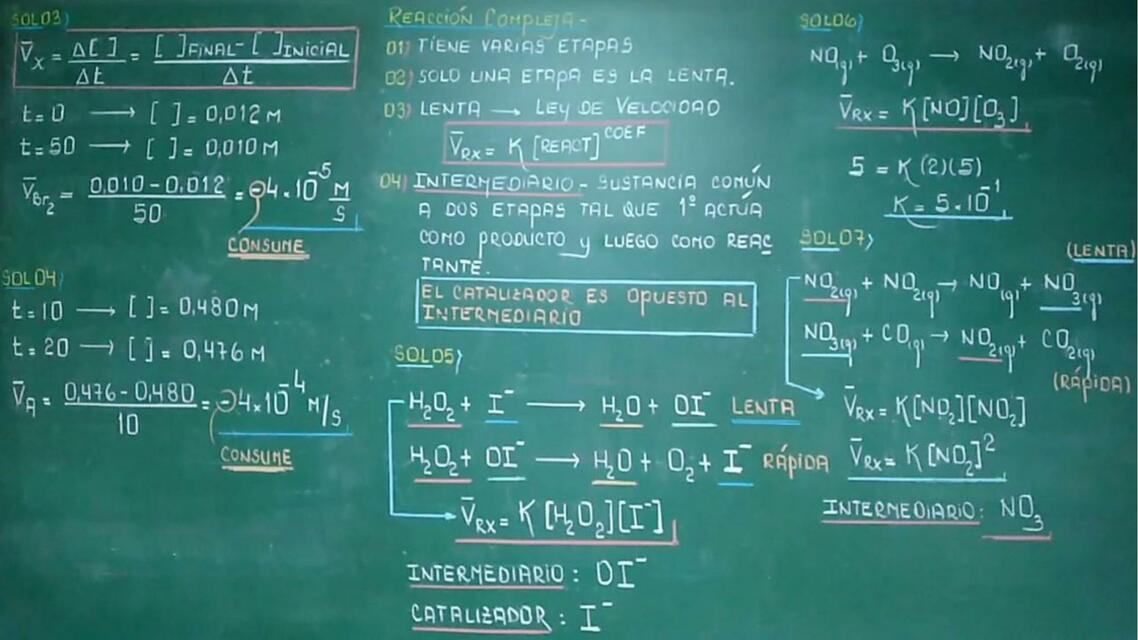 SOL03)
V̄x = Δ[ ]/Δt = [ ]FINAL - [ ]INICIAL/Δt
t = 0 → [ ] = 0,012 M
t = 50 → [ ] = 0,010 M
V̄Br₂ = 0,010 - 0,012/50 = -4×10⁻⁵ M/S
CONSUME
SOL04)
t = 10 → [ ] = 0,480 M
t = 20 → [ ] = 0,476 M
V̄A = 0,476 - 0,480/10 = -4×10⁻⁴ M/S
CONSUME
REACCIÓN COMPLEJA-
01) TIENE VARIAS ETAPAS
02) SOLO UNA ETAPA ES LA LENTA.
03) LENTA → LEY DE VELOCIDAD
V̄RX = K [REACT]^COEF
04) INTERMEDIARIO - SUSTANCIA COMÚN
A DOS ETAPAS TAL QUE 1º ACTÚA
COMO PRODUCTO y LUEGO COMO REAC
TANTE.
EL CATALIZADOR ES OPUESTO AL
INTERMEDIARIO
SOL05)
H₂O₂ + I⁻ → H₂O + OI⁻ LENTA
H₂O₂ + OI⁻ → H₂O + O₂ + I⁻ RÁPIDA
V̄RX = K [H₂O₂][I⁻]
INTERMEDIARIO: OI⁻
CATALIZADOR: I⁻
SOL06)
NO(g) + O₃(g) → NO₂(g) + O₂(g)
V̄RX = K[NO][O₃]
5 = K (2)(5)
K = 5×10⁻¹
SOL07)
(LENTA)
NO₂(g) + NO₂(g) → NO(g) + NO₃(g)
NO₃(g) + CO(g) → NO₂(g) + CO₂(g)
(RÁPIDA)
V̄RX = K[NO₂][NO₂]
V̄RX = K[NO₂]²
INTERMEDIARIO: NO₃